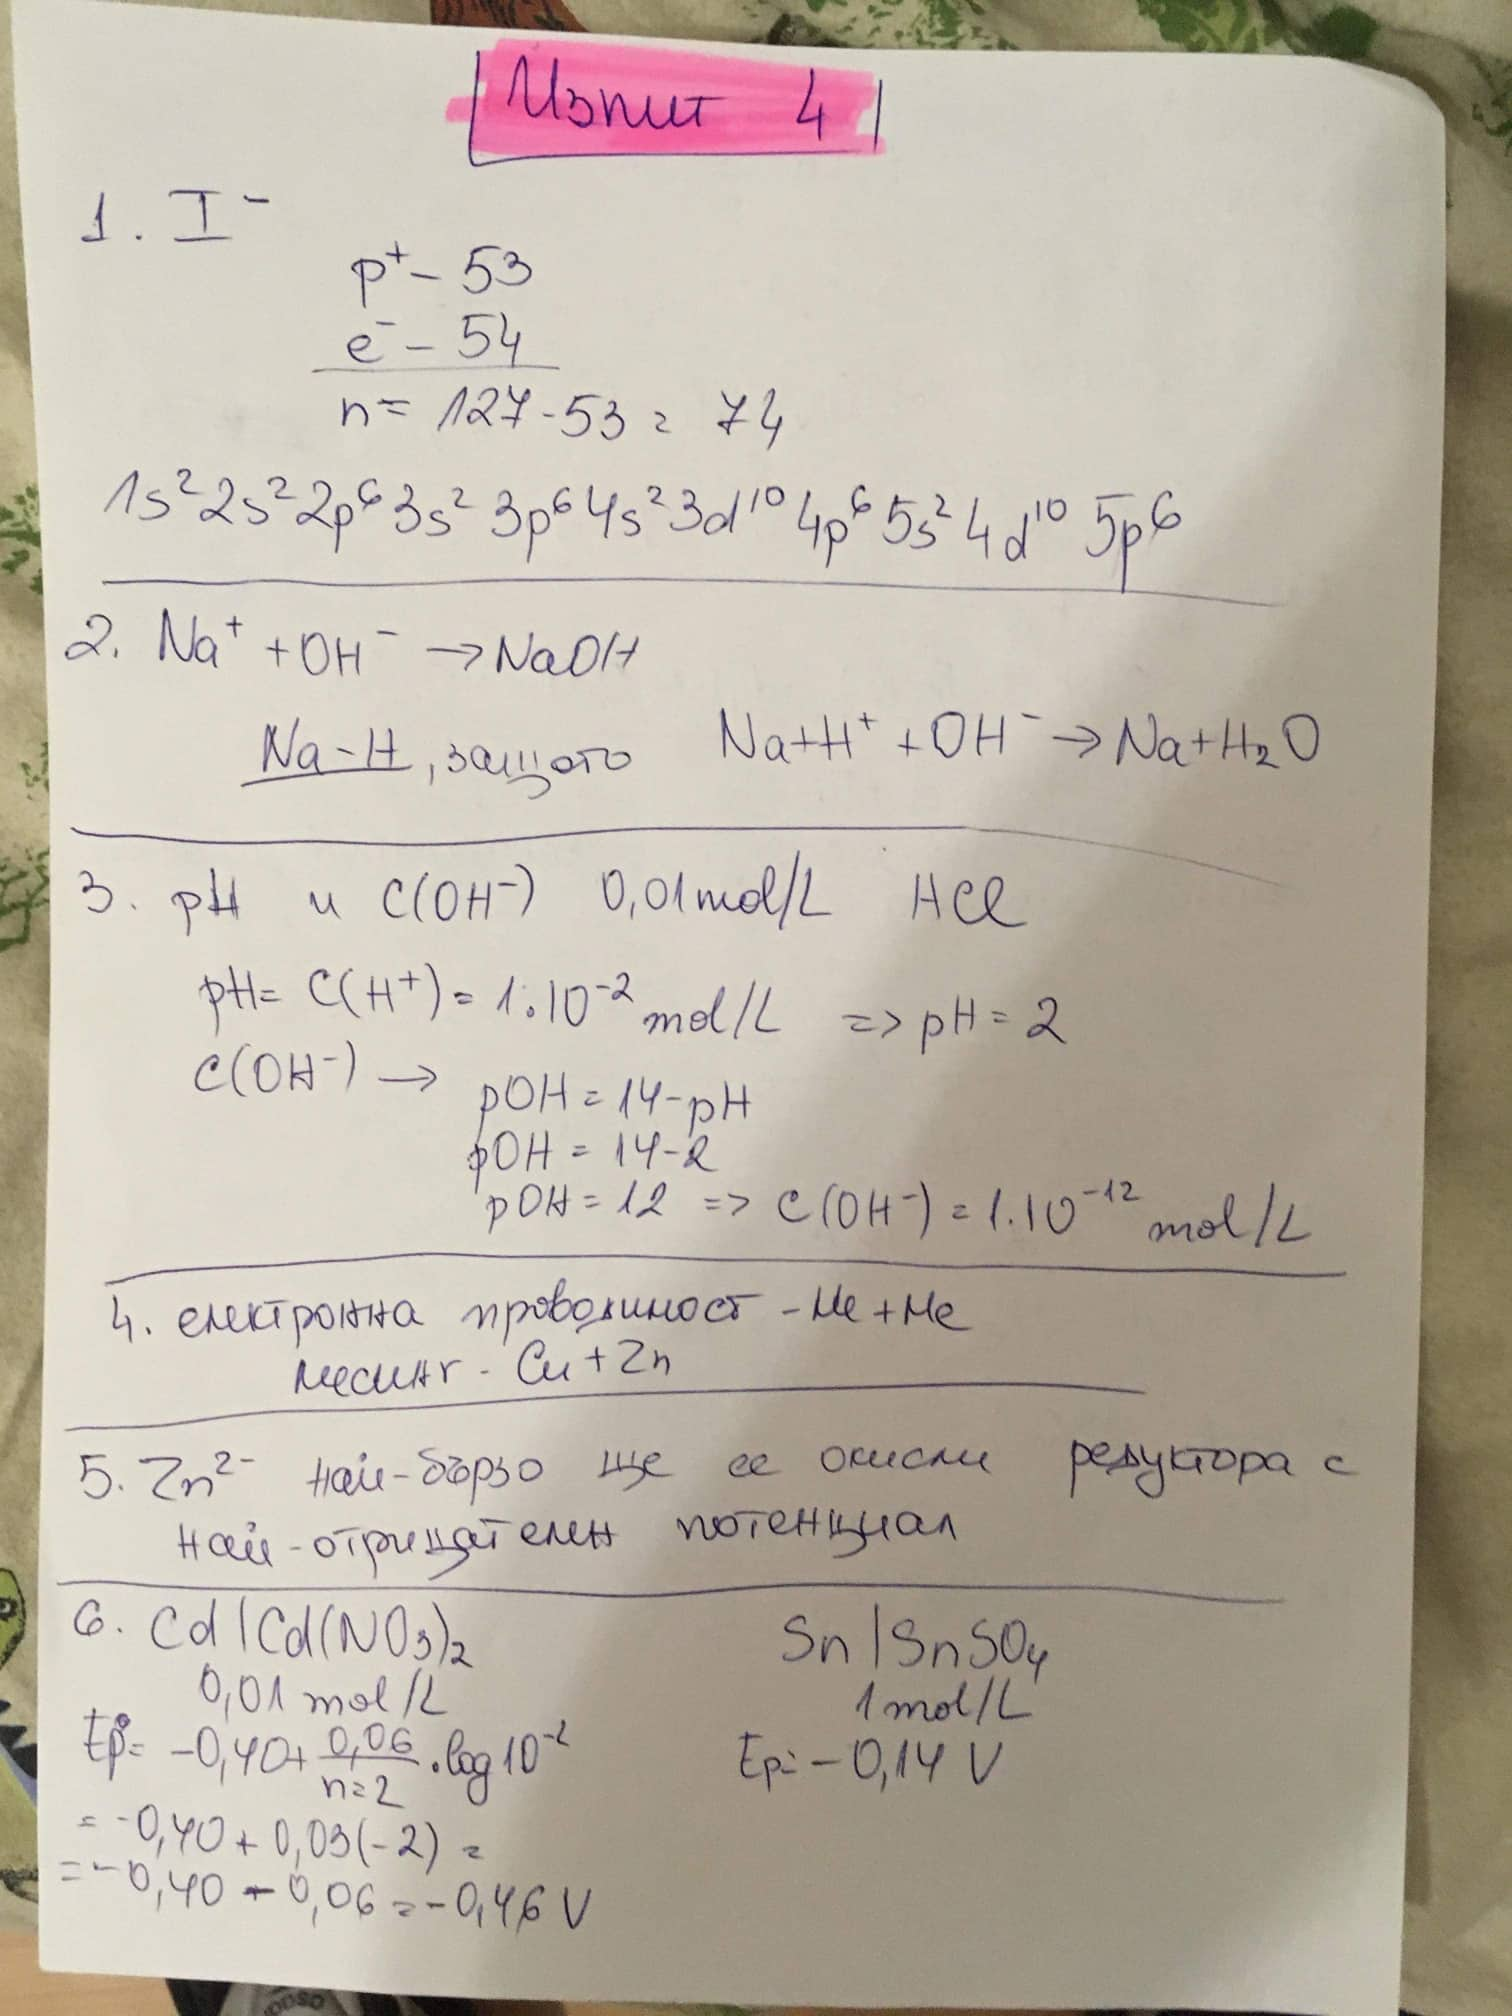 Изпит 4
1. I⁻
p⁺ – 53
e⁻ – 54
n = 127 - 53 = 74
1s² 2s² 2p⁶ 3s² 3p⁶ 4s² 3d¹⁰ 4p⁶ 5s² 4d¹⁰ 5p⁶
2. Na⁺ + OH⁻ → NaOH
Na-H, защото Na+H⁺ + OH⁻ → Na+H₂O
3. pH и C(OH⁻) 0,01mol/L HCl
pH = C(H⁺) = 1.10⁻² mol/L => pH = 2
C(OH⁻) → pOH = 14-pH
pOH = 14-2
pOH = 12 => C(OH⁻) = 1.10⁻¹² mol/L
4. електронна проводимост - Me + Me
месинг - Cu + Zn
5. Zn²⁻ най-бързо ще се окисли редуктора с
най-отрицателен потенциал
6. Cd|Cd(NO₃)₂ Sn|SnSO₄
0,01 mol/L 1mol/L
Ep = -0,40 + 0,06/n=2 . log10⁻² Ep = -0,14 V
= -0,40 + 0,03(-2) =
= -0,40 - 0,06 = -0,46 V